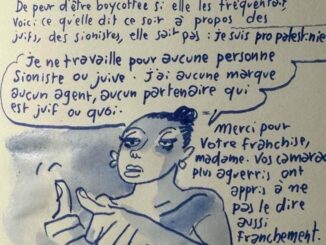 De peur d'être boycottée si elle les fréquentait
Voici ce qu'elle dit ce soir à propos des
juifs, des sionistes, elle sait pas : je suis pro palestinie
Je ne travaille pour aucune personne
Sioniste ou juive. j'ai aucune marque
aucun agent, aucun partenaire qui
est juif ou quoi.
Merci pour
Votre franchise,
madame. Vos camarad
plus aguerris ont
appris à ne
pas le dire
aussi
franchement.